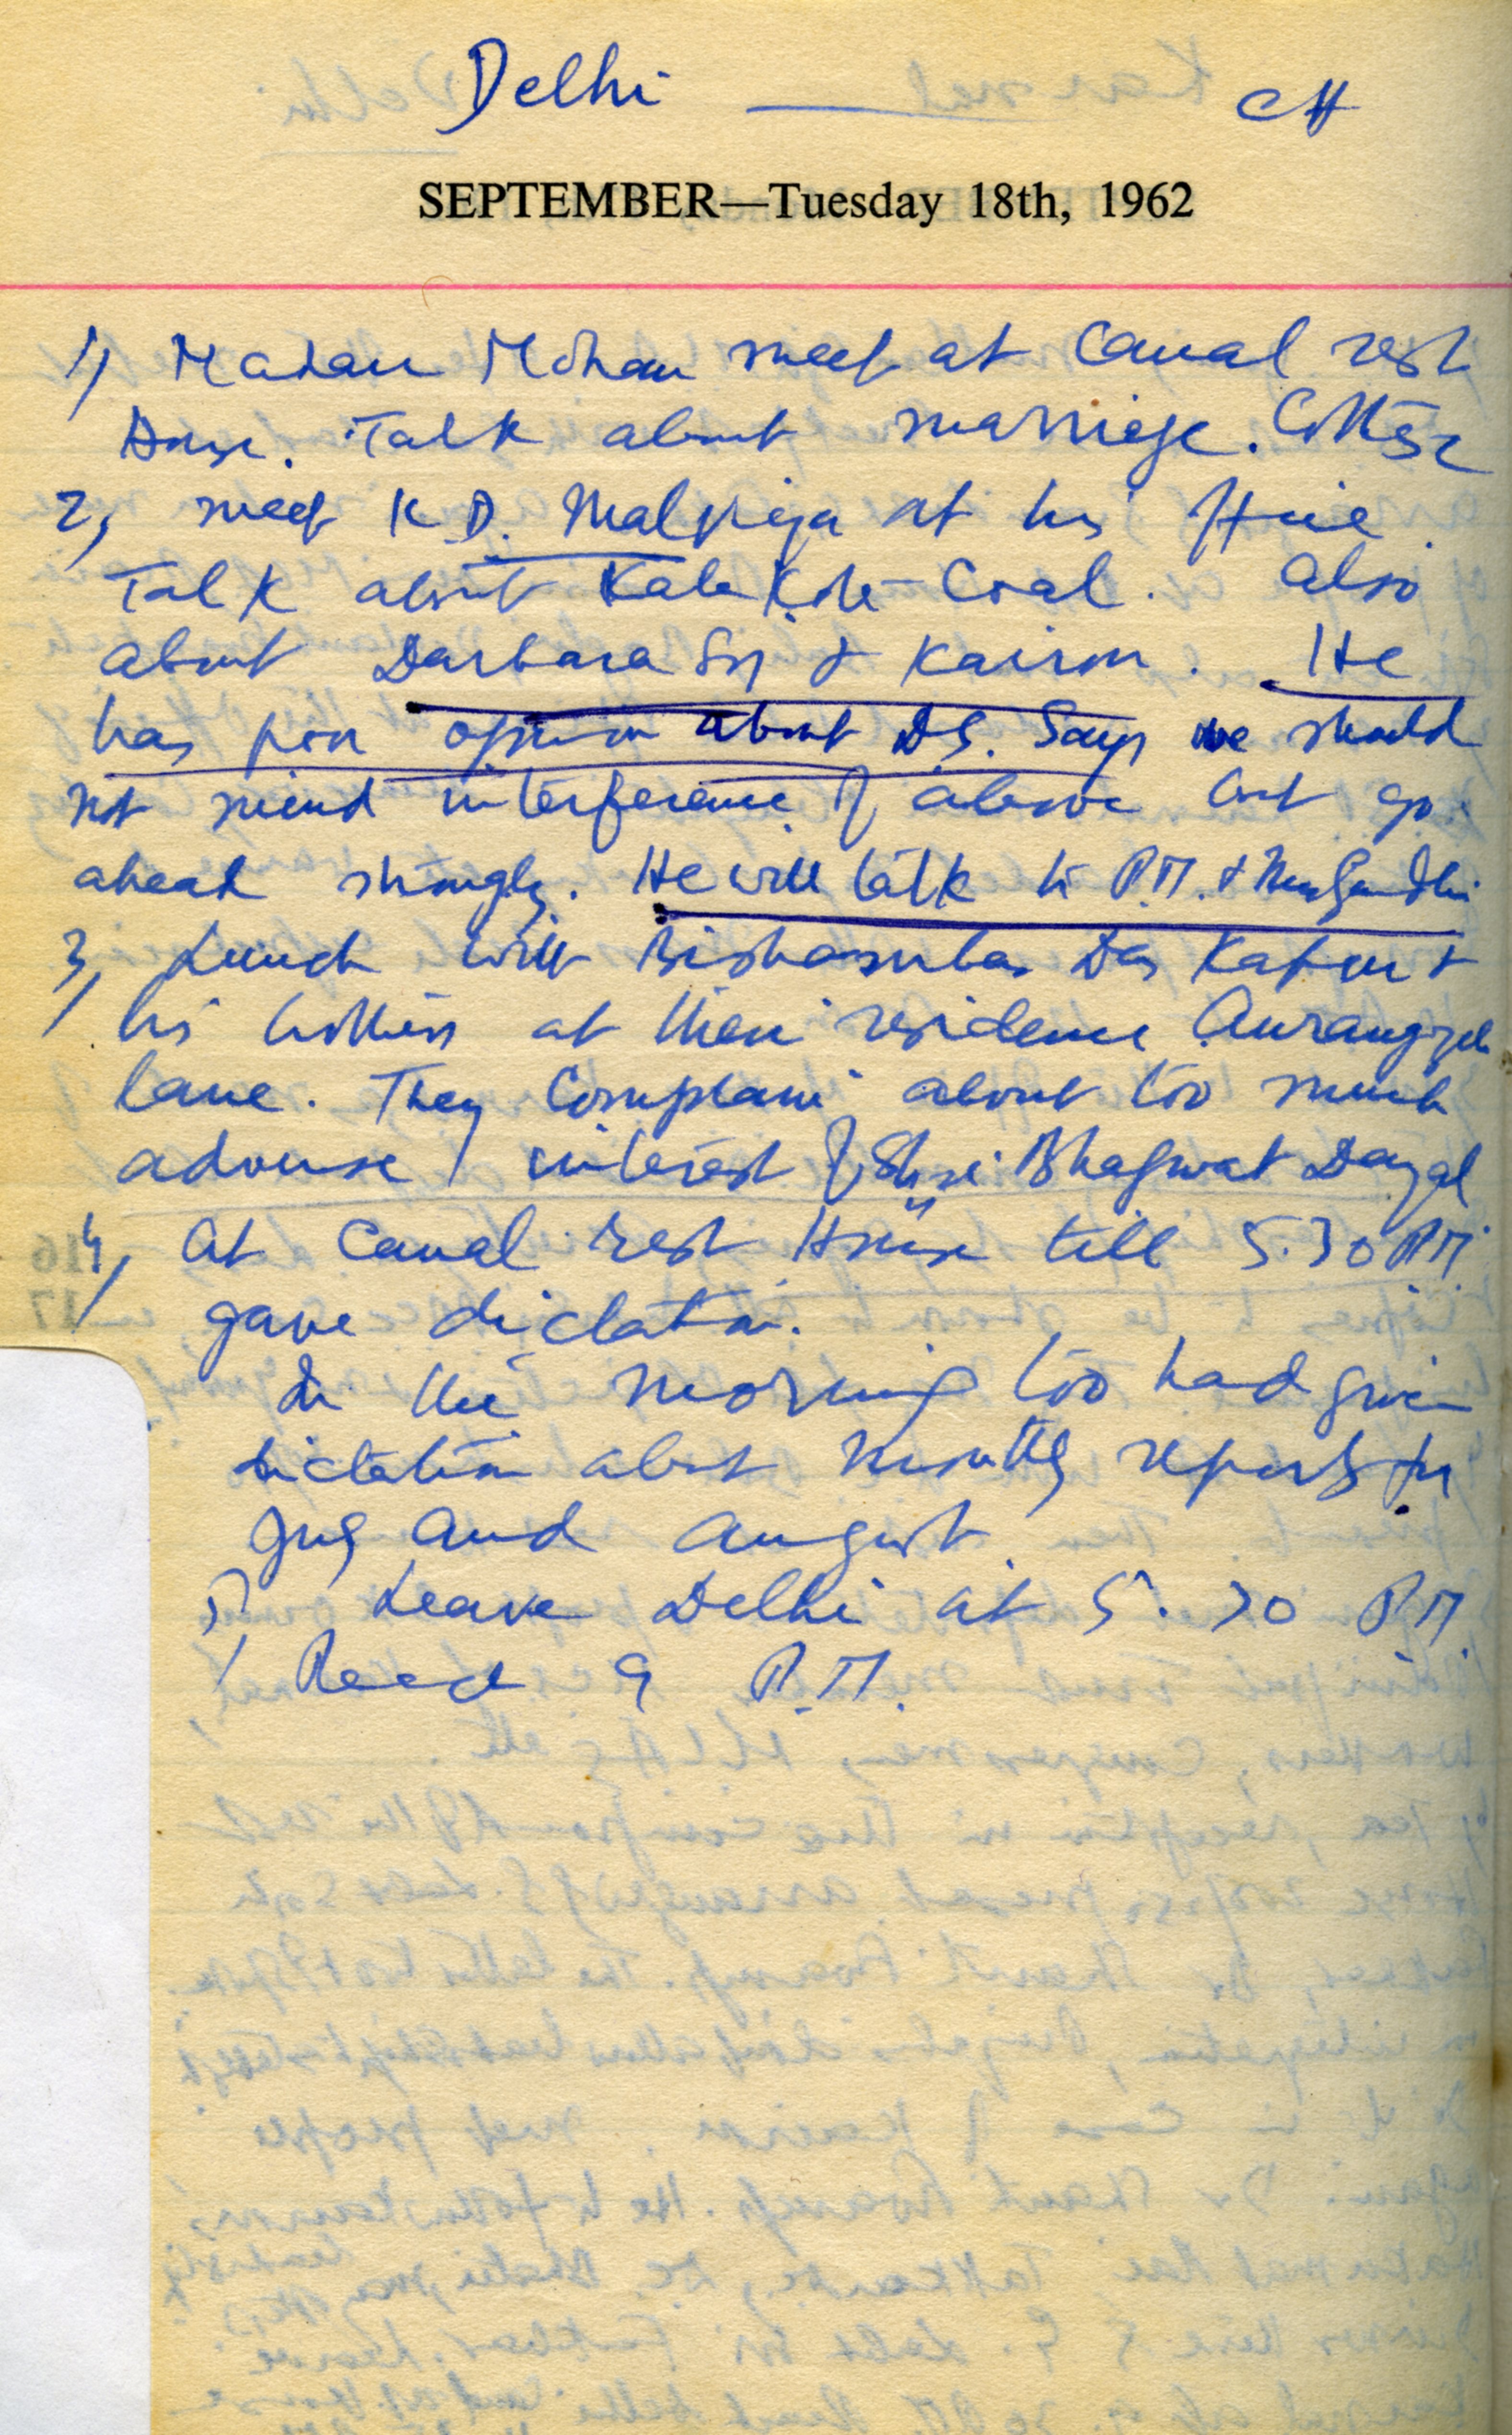 Delhi — CH
SEPTEMBER—Tuesday 18th, 1962
1, Madan Mohan meet at Canal rest
House. Talk about marriage.
2, meet K.D. Malviya at his
Talk about Kala Kote Coal. Also
about Darbara Sn & Kairon. He
has poor opinion about DS. Says we should
not mind interference of above but go
ahead strongly. He will talk to P.M. & Mrs Gandhi
3, Lunch with Bishamber Das Kapur &
his brothers at their residence Aurangzeb
lane. They Complain about too much
adverse interest of Shri Bhagwat Dayal
4, At Canal rest House till 5.30 PM
gave dictation.
In the morning too had given
dictation about monthly reports for
July and August.
5, Leave Delhi at 5.30 P.M.
Reach 9 P.M.